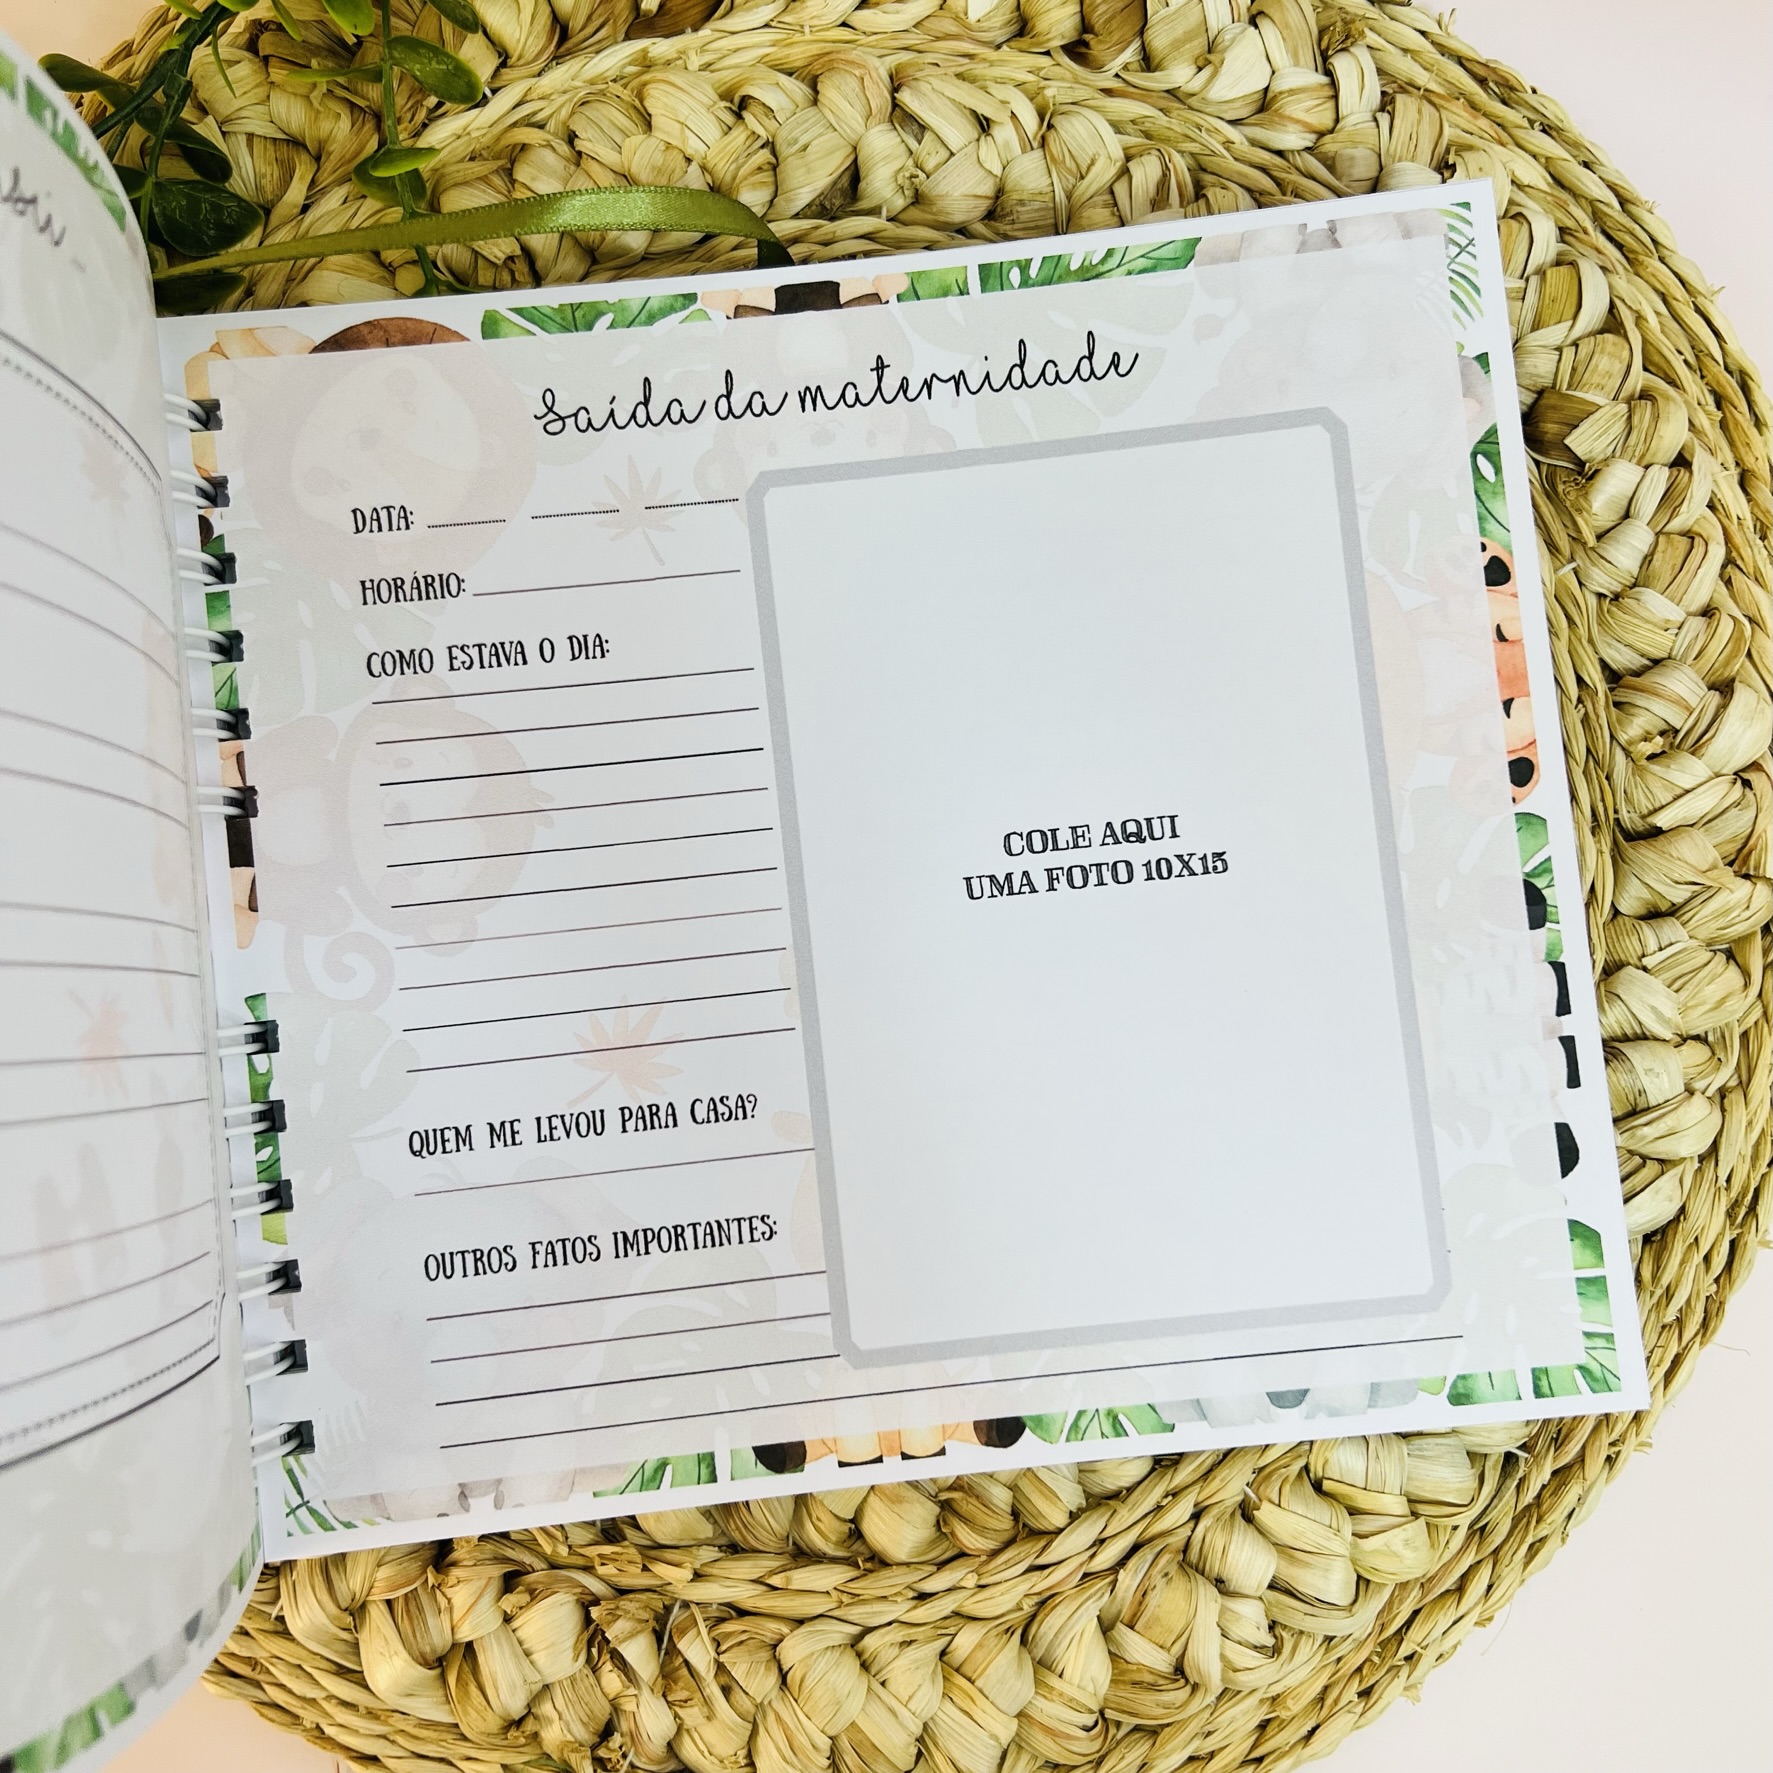 Saída da maternidade
DATA:
HORÁRIO:
COMO ESTAVA O DIA:
COLE AQUI
UMA FOTO 10X15
QUEM ME LEVOU PARA CASA?
OUTROS FATOS IMPORTANTES: